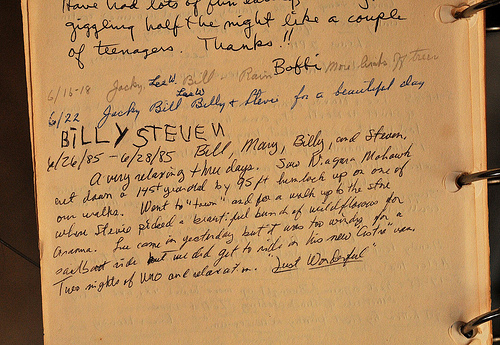 Have had lots of fun
giggling half the night like a couple
of teenagers. Thanks!!
Bobbi
6/16-18 Jacky, Lee W. Bill - Rain More limbs off trees
Lee W.
6/22 Jacky Bill Billy + Steve for a beautiful day
BiLLY STEVEN
6/26/85 - 6/28/85 Bill, Mary, Billy, and Steven,
A very relaxing three days. Saw Niagara Mohawk
cut down a 145 yr old by 95 ft hemlock up on one of
our walks. Went to "town" and for a walk up to the store
where Stevie picked a beautiful bunch of wildflowers for
Gramma. Lee came in yesterday but it was too windy for a
sailboat ride but we did get to ride in his new "Astro" van.
Two nights of UNO and relaxation. "Just Wonderful"